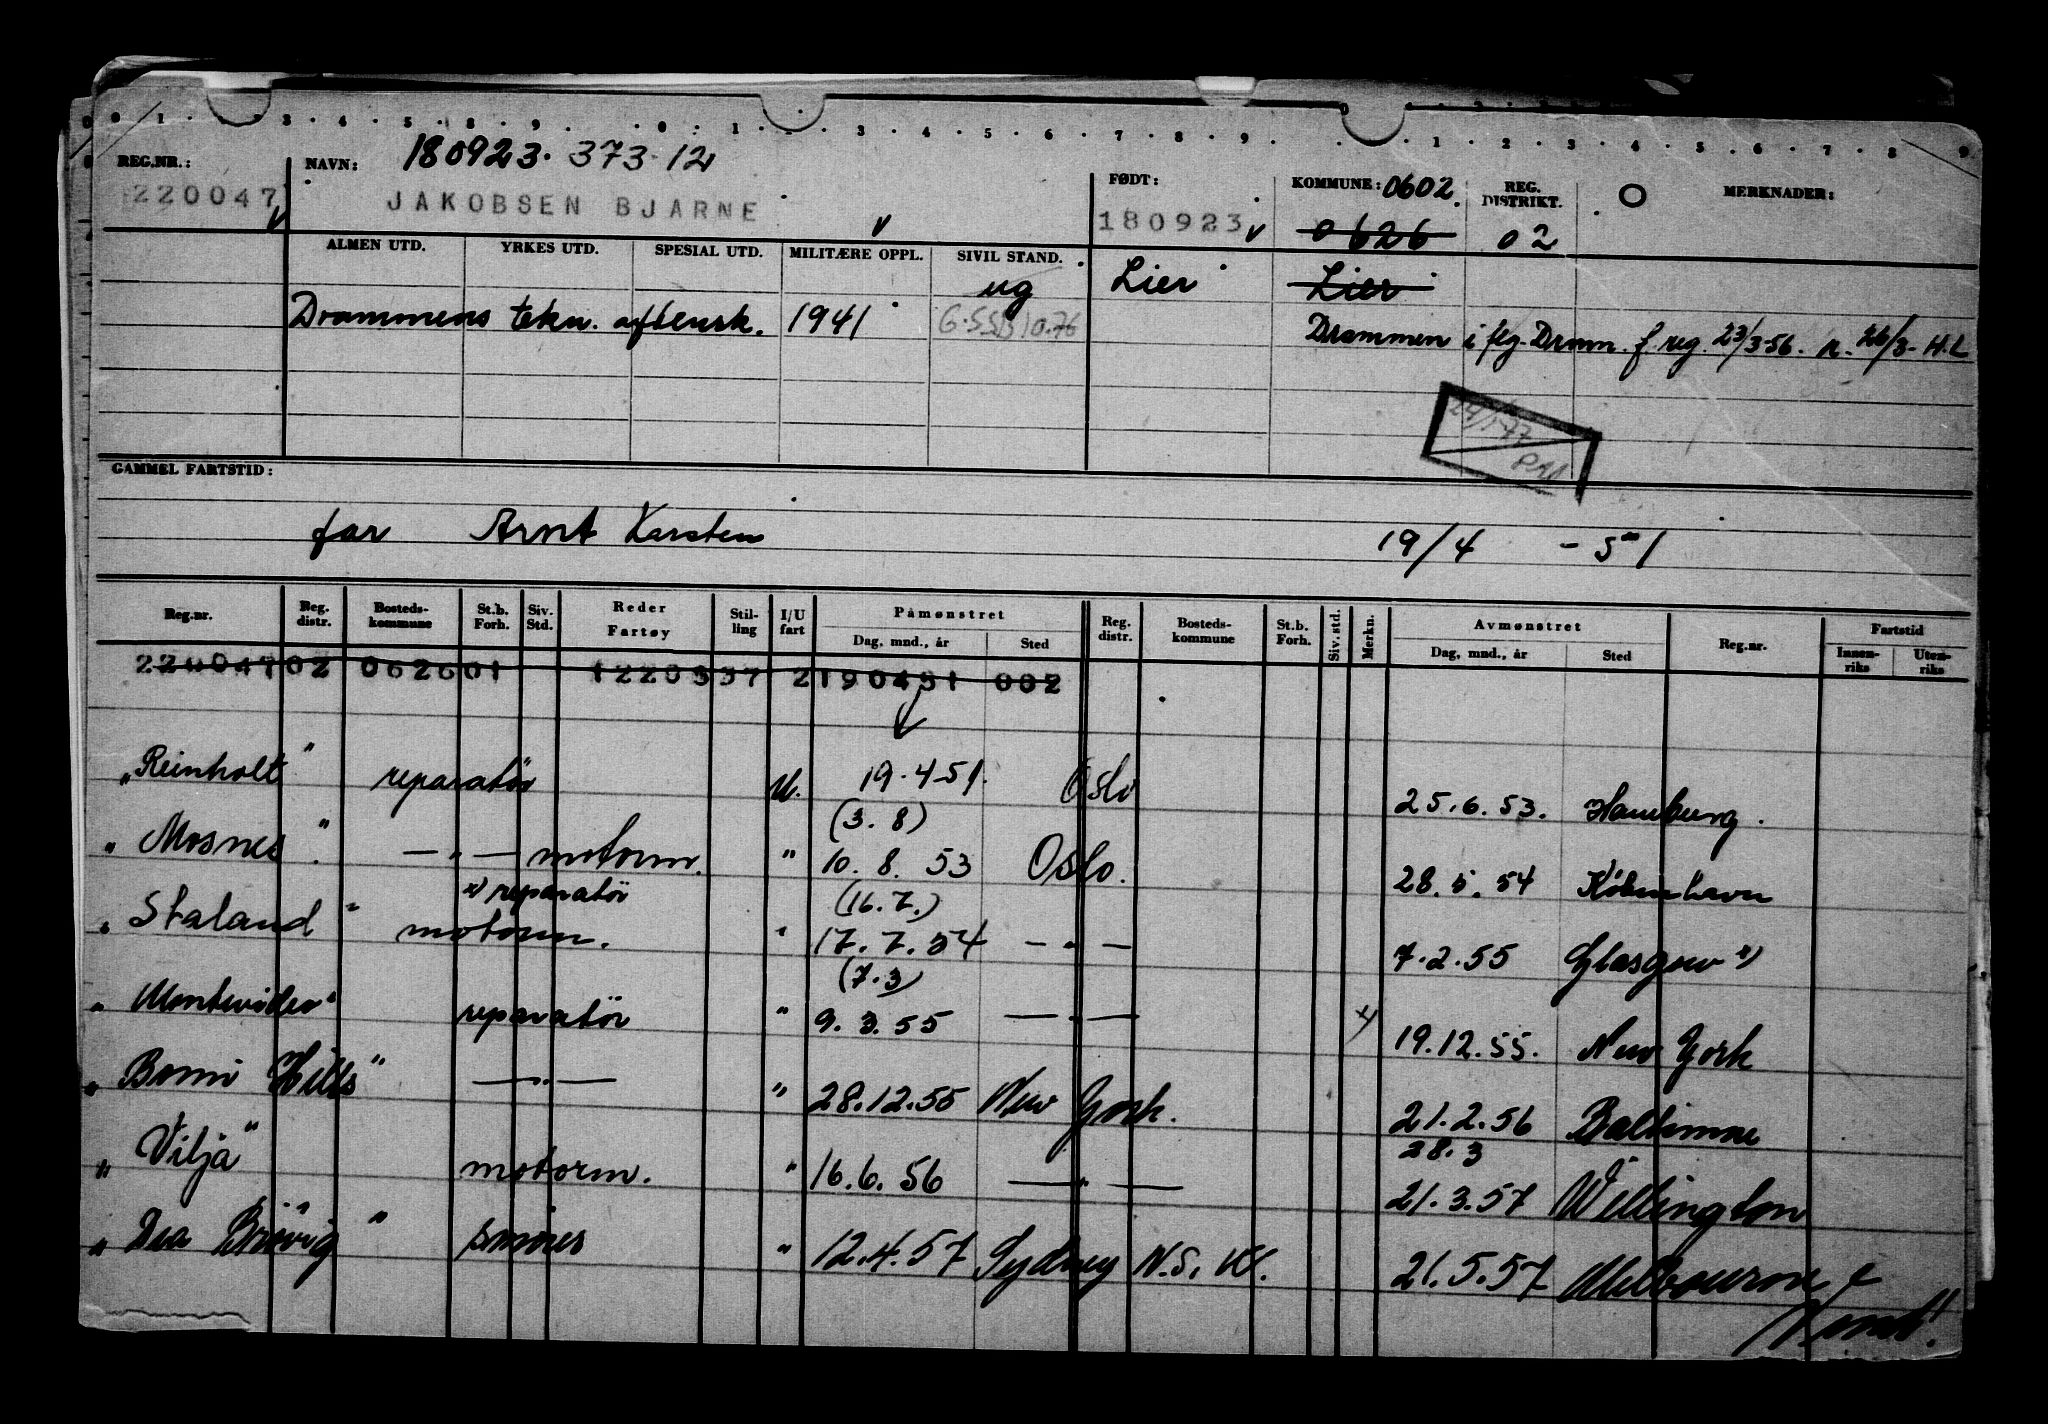 REG.NR.: NAVN: 180923. 373 12 FØDT: KOMMUNE: 0602. REG. DISTRIKT. O MERKNADER:
220047 JAKOBSEN BJARNE 180923 0626 02
ALMEN UTD. YRKES UTD. SPESIAL UTD. MILITÆRE OPPL. SIVIL STAND.
ug Lier Lier
Drammens tekn. aftensk. 1941 G. Drammen i flg. Dram. f. reg. 23/3-56. n. 26/3- H.L
24/1-77
GAMMEL FARTSTID:
far Arnt Karsten 19/4 - 51
Reg.nr. Reg. distr. Bosteds-kommune St.b. Forh. Siv. Std. Reder Fartøy Stil-ling I/U fart Påmønstret Dag, mnd., år Sted Reg. distr. Bosteds-kommune St.b. Forh. Siv. std. Merkn. Avmønstret Dag, mnd., år Sted Reg.nr. Fartstid Innen-riks Uten-riks
220047 02 0626 01 1220337 2 190451 002
"Reinholt" reparatør U. 19.4-51. Oslo 25.6.53. Hamburg.
(3.8)
"Mosnes". — " — motorm. " 10.8.53 Oslo. 28.5.54 København
x) reparatør (16.7.)
"Staland" motorm. " 17.7.54 — " — 7.2.55 Glasgow x)
(7.3)
"Montevideo" reparatør " 9.3.55 — " — x) 19.12.55. New York
"Bomi Hills" — " — " 28.12.55 New York. 21.2.56 Baltimore
28.3
"Vilja" motorm. " 16.6.56 — " — 21.3.57 Wellington
"Dea Brøvig" smører " 12.4.57 Sydney N.S.W. 21.5.57 Melbourne
Vend!